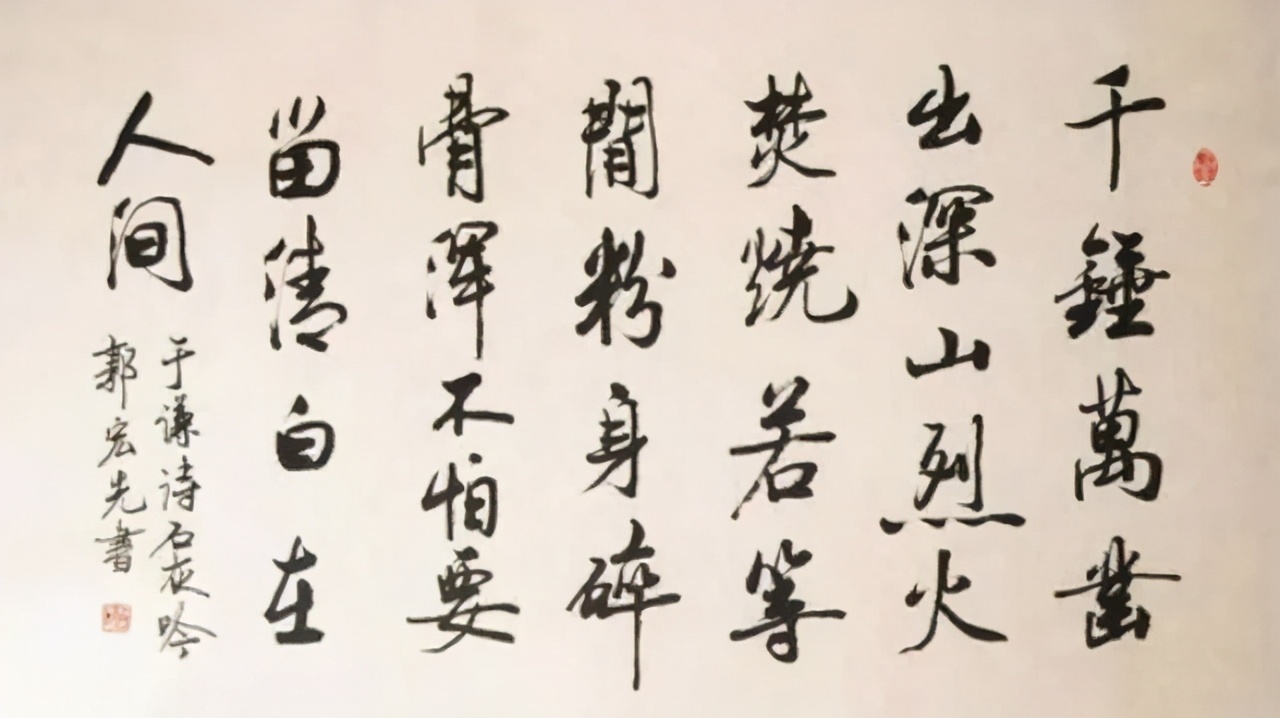 千錘萬鑿
出深山烈火
焚燒若等
閒粉身碎
骨渾不怕要
留清白在
人间
于谦诗石灰吟
郭宏先書